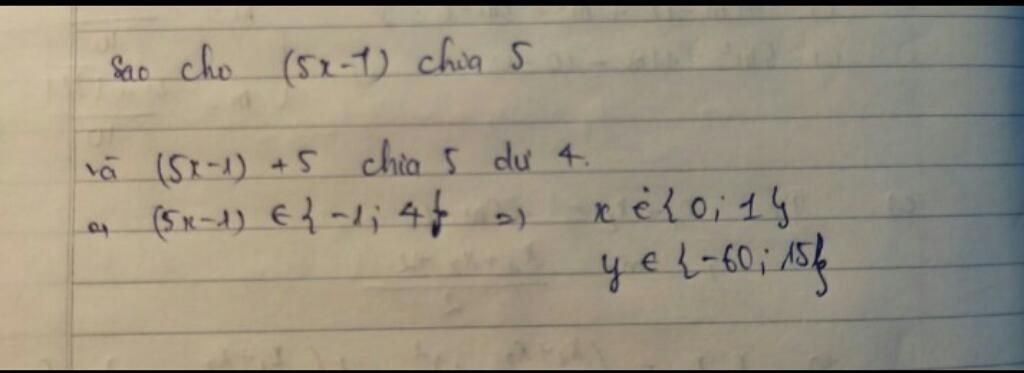 Sao cho (5x-1) chia 5
và (5x-1) +5 chia 5 dư 4.
(5x-1) ∈ { -1; 4 } => x ∈ { 0; 1 }
y ∈ { -60; 15 }